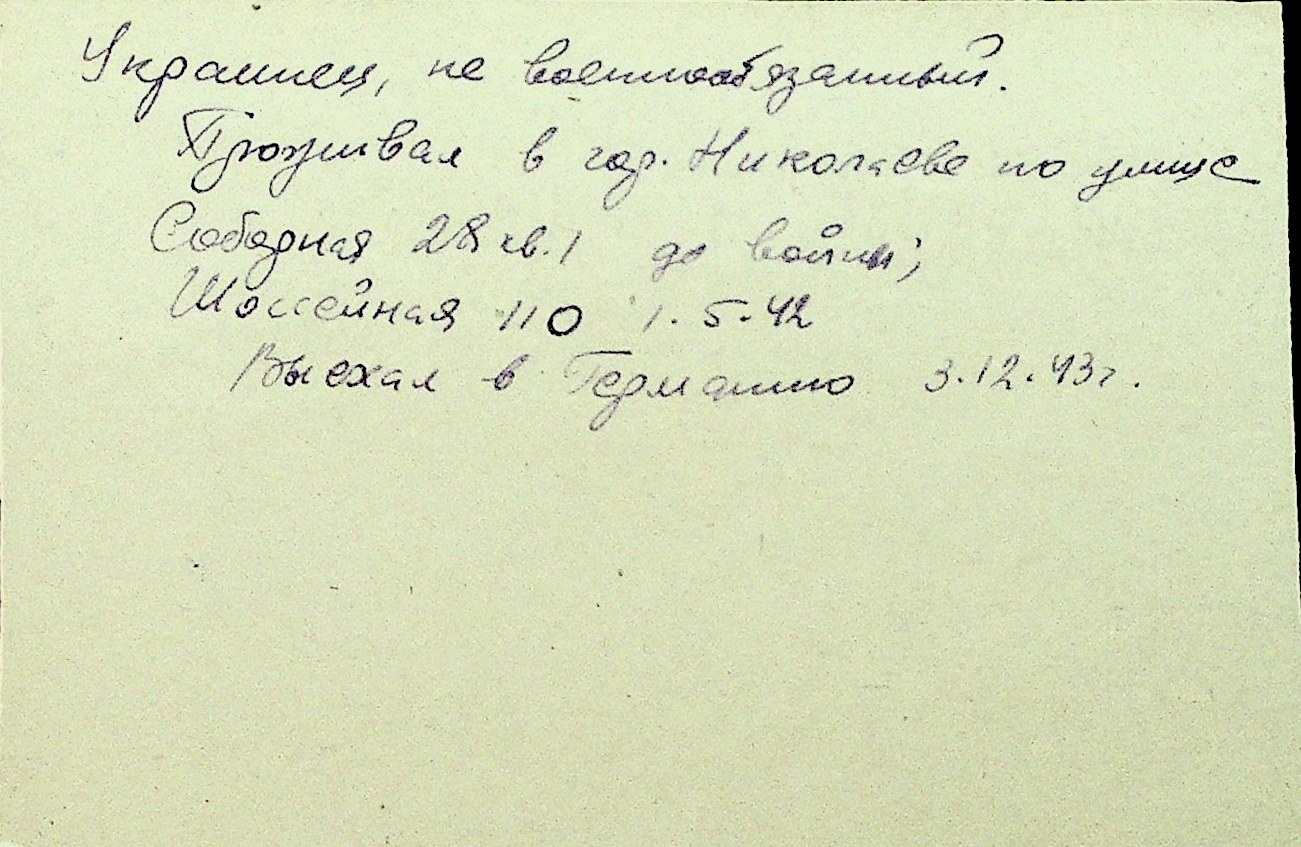 Украинец, не военнообязанный.
Проживал в гор. Николаеве по улице
Сободная 28 кв. 1 до войны;
Шоссейная 110 1.5.42
Выехал в Германию 3.12.43г.